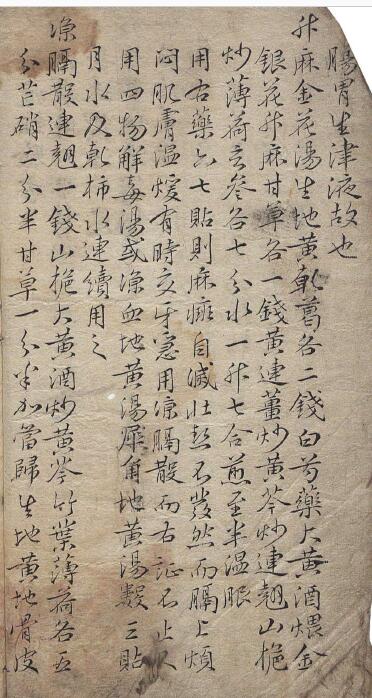 腸胃生津液故也
升麻金花湯生地黃乾葛各二錢白芍藥大黃酒煨金
銀花升麻甘草各一錢黃連薑炒黃芩炒連翹山梔
炒薄荷玄參各七分水一升七合煎至半溫服
用右藥六七貼則麻痲自減壯熱不發然而膈上煩
悶肌膚溫煖有時交牙急用涼膈散而右證不止又
用四物解毒湯或涼血地黃湯犀角地黃湯數三貼
月水及乾柿水連續用之
凉膈散連翹一錢山梔大黃酒炒黃芩竹葉薄荷各五
分芒硝二分半甘草一分半加當歸生地黃地骨皮